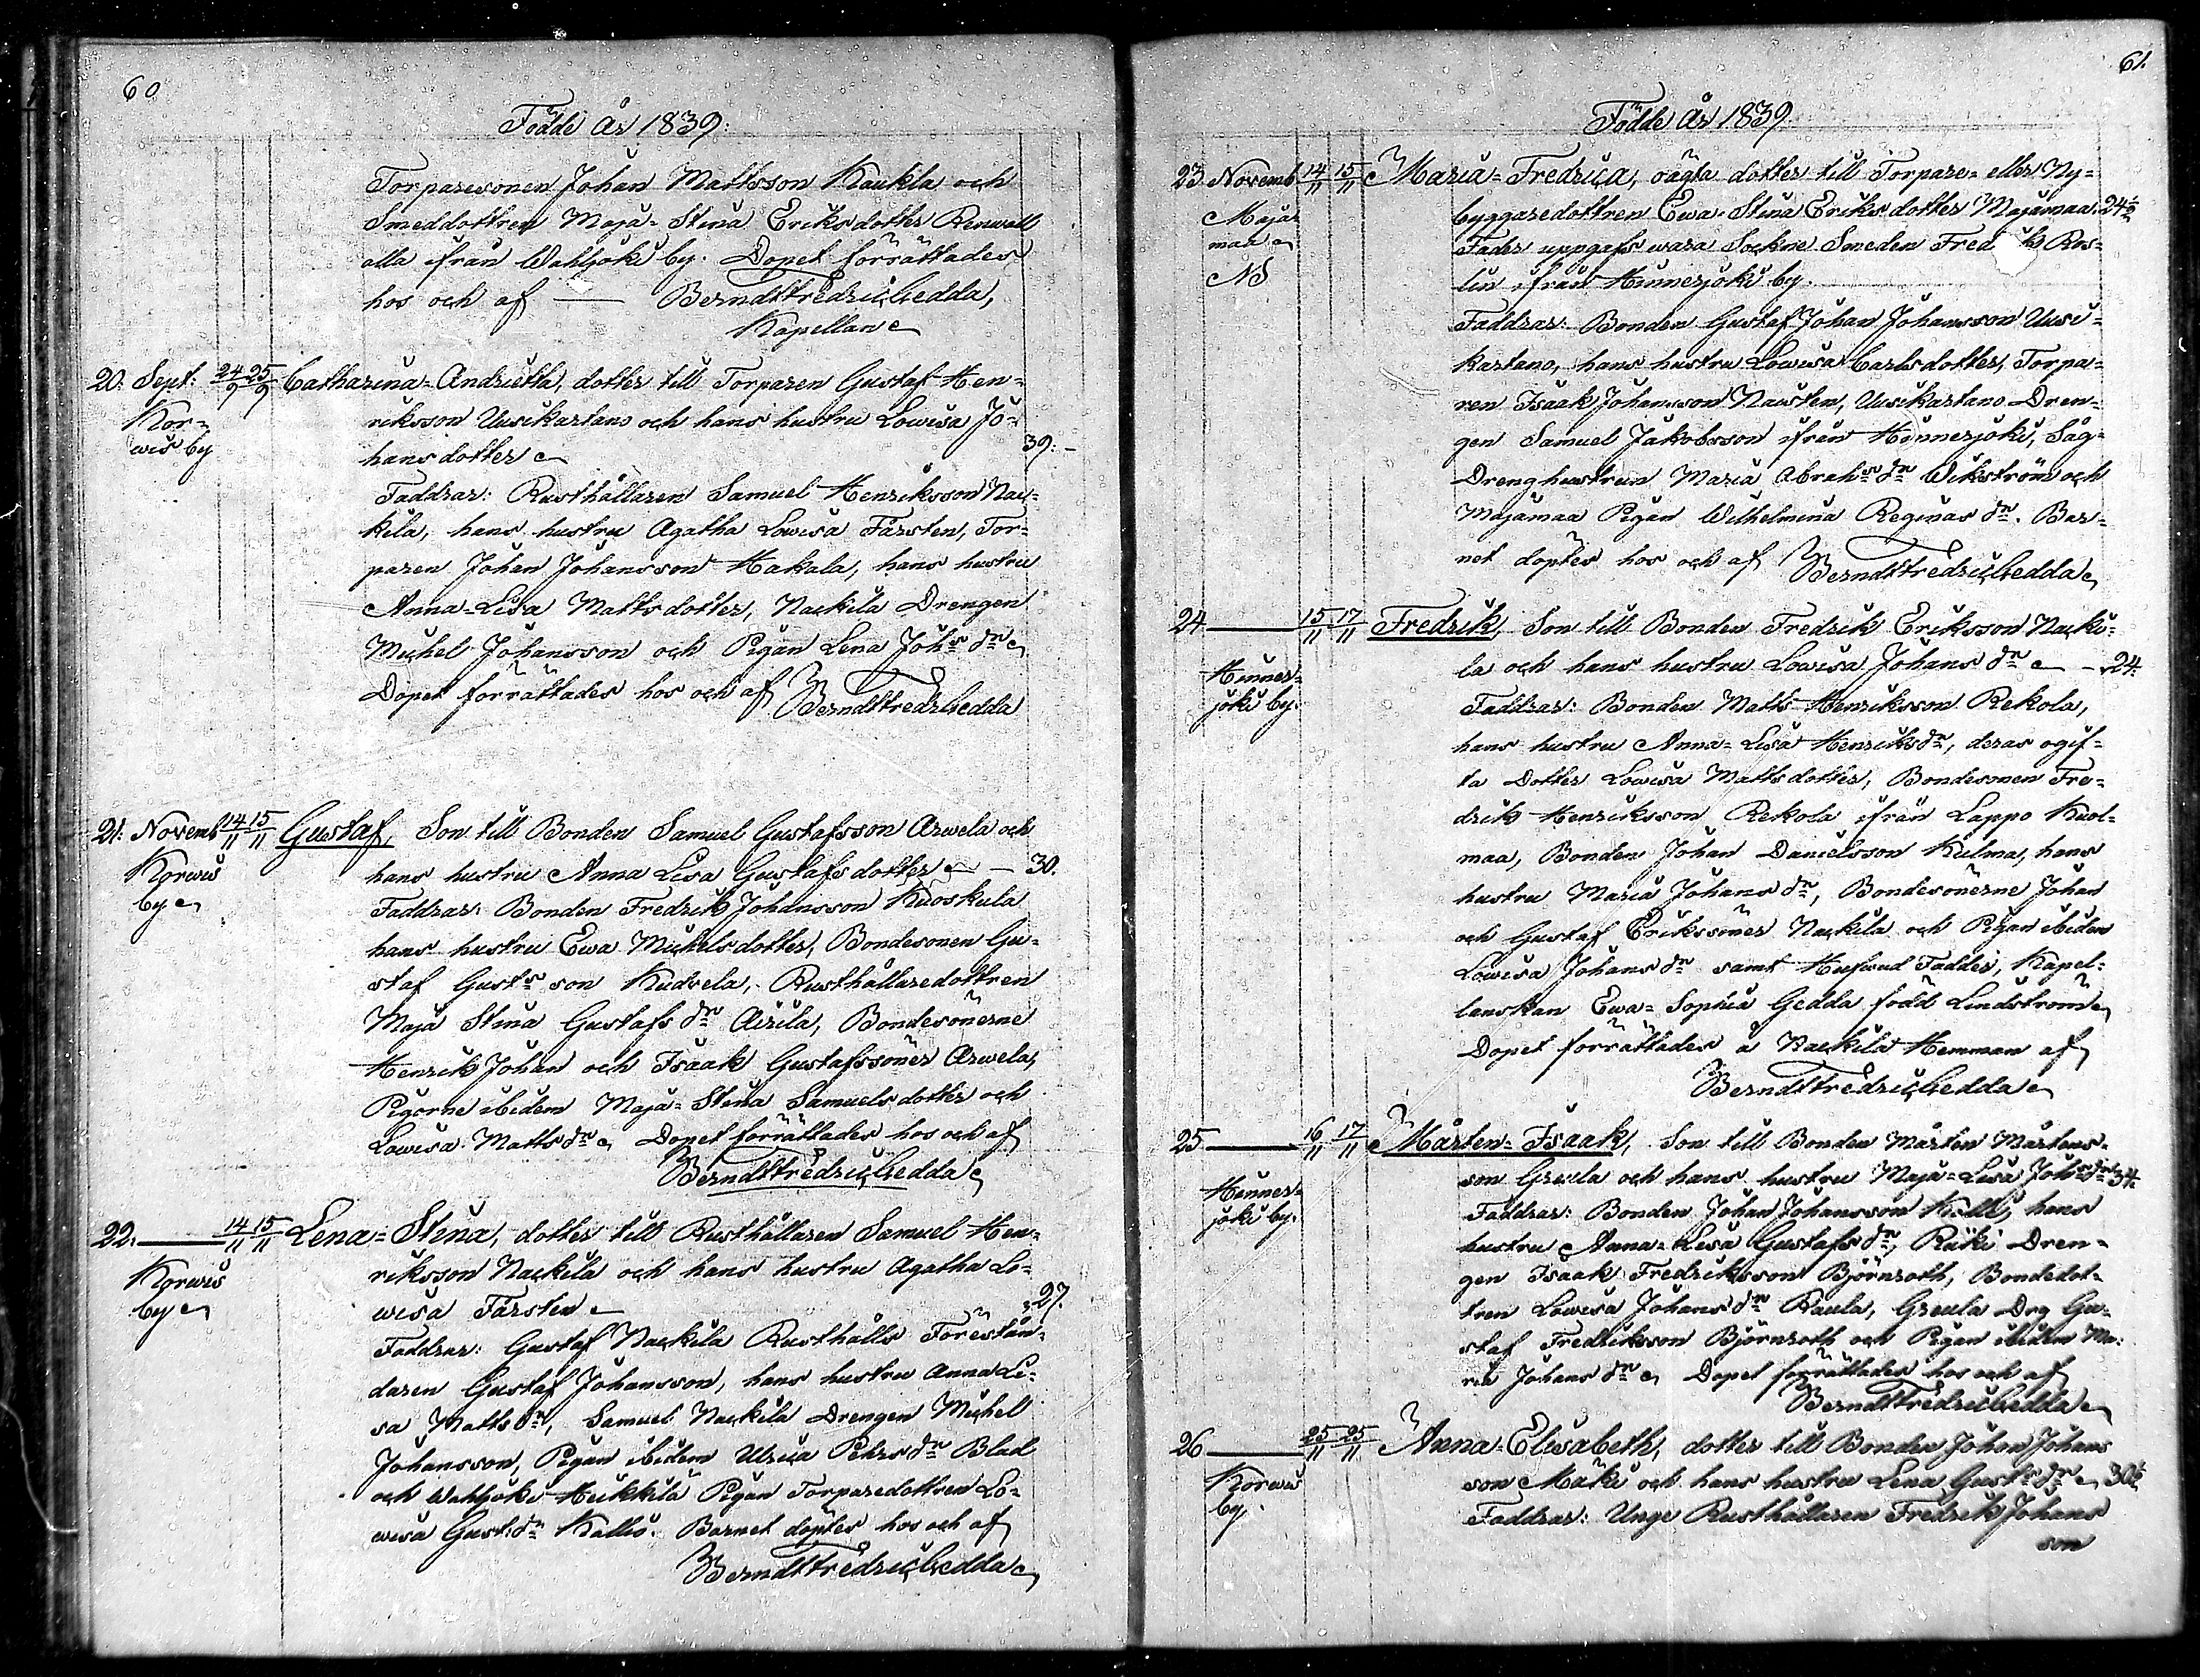 60
Födde År 1839.
Torparesonen Johan Mattsson Kaukla och
Smeddottren Maja-Stina Eriksdotter Renwall
alla ifrån Wahljoki by. Dopet förrättades
hos och af — Berndt Fredric Gedda,
Kapellan
20. Sept: 24/9 25/9 Catharina-Andrietta, dotter till Torparen Gustaf Hen-
Kor- riksson Uusikartano och hans hustru Lowisa Jo-
wis by hansdotter 39.
Faddrar: Rusthållaren Samuel Henriksson Nac-
kila, hans hustru Agatha Lowisa Färsten, Tor-
paren Johan Johansson Hakala, hans hustru
Anna-Lisa Mattsdotter, Nackila Drengen
Michel Johansson och Pigan Lena Johs dr
Dopet förrättades hos och af Berndt Fredr Gedda
21. Novemb 14/11 15/11 Gustaf, Son till Bonden Samuel Gustafsson Arwela och
Korwis hans hustru Anna Lisa Gustafsdotter — 30.
by Faddrar: Bonden Fredrik Johansson Kuoskula
hans hustru Ewa Michelsdotter, Bondesonen Gu-
staf Gusts son Kudvela, Rusthållaredottren
Maja Stina Gustafs dr Airila, Bondesönerne
Henrik Johan och Isaak Gustafssöner Arwela,
Pigorne ibidem Maja-Stina Samuelsdotter och
Lowisa Matts dr Dopet förrättades hos och af
Berndt Fredric Gedda
22. — 14/11 15/11 Lena-Stina, dotter till Rusthållaren Samuel Hen-
Korwis riksson Nackila och hans hustru Agatha Lo-
by wisa Färsten 27.
Faddrar: Gustaf Nackila Rusthålls Förestån-
daren Gustaf Johansson, hans hustru Anna Li-
sa Matts dr, Samuel Nackila Drengen Michel
Johansson, Pigan ibidem Ulrica Pehrs dr Blad
och Wahljoki Heikkilä Pigan Torparedottren Lo-
wisa Gust: dr Kallio. Barnet döptes hos och af
Berndt Fredric Gedda
61.
Födde År 1839.
23 Novemb 14/11 15/11 Maria-Fredrica, oägta dotter till Torpare- eller Ny-
Maja- byggaredottren Ewa-Stina Eriksdotter Majamaa. 24
maa Fader uppgafs wara Sockne Smeden Fred k Ros-
NS lin ifrån Hinnerjoki by.
Faddrar: Bonden Gustaf Johan Johansson Uusi-
kartano, hans hustru Lowisa Carlsdotter, Torpa-
ren Isaak Johansson Nausten, Uusikartano Dren-
gen Samuel Jakobsson ifrån Hinnerjoki, Såg-
Drenghustrun Maria Abrahs dr Wikström och
Majamaa Pigan Wilhelmina Reginas dr. Bar-
net döptes hos och af Berndt Fredric Gedda
24 — 15/11 17/11 Fredrik, Son till Bonden Fredrik Eriksson Nacki-
Hinner- la och hans hustru Lowisa Johans dr — 24.
joki by. Faddrar: Bonden Matts Henriksson Rekola,
hans hustru Anna-Lisa Henriks dr, deras ogif-
ta Dotter Lowisa Mattsdotter, Bondesonen Fre-
drik Henriksson Rekola ifrån Lappo Kuol-
maa, Bonden Johan Danielsson Kulma, hans
hustru Maria Johans dr, Bondesönerne Johan
och Gustaf Erikssöner Nackila och Pigan ibidem
Lowisa Johans dr samt Hufwud Fadder, Kapel-
lanskan Ewa-Sophia Gedda född Lindström
Dopet förrättades å Nackila Hemman af
Berndt Fredric Gedda
25 — 16/11 17/11 Mårten-Isaak, Son till Bonden Mårten Mårtens-
Hinner- son Greula och hans hustru Maja-Lisa Johs dr 34.
joki by. Faddrar: Bonden Johan Johansson Kolli, hans
hustru Anna-Lisa Gustafs dr, Räki Dren-
gen Isaak Fredriksson Björnroth, Bondedot-
tren Lowisa Johans dr Kaula, Greula Drg Gu-
staf Fredriksson Björnroth och Pigan ibidem Ma-
ria Johans dr Dopet förrättades hos och af
Berndt Fredric Gedda
26 — 25/11 25/11 Anna-Elisabeth, dotter till Bonden Johan Johans
Korwis son Mäki och hans hustru Lena Gusts dr 30
by. Faddrar: Unge Rusthållaren Fredrik Johans
son